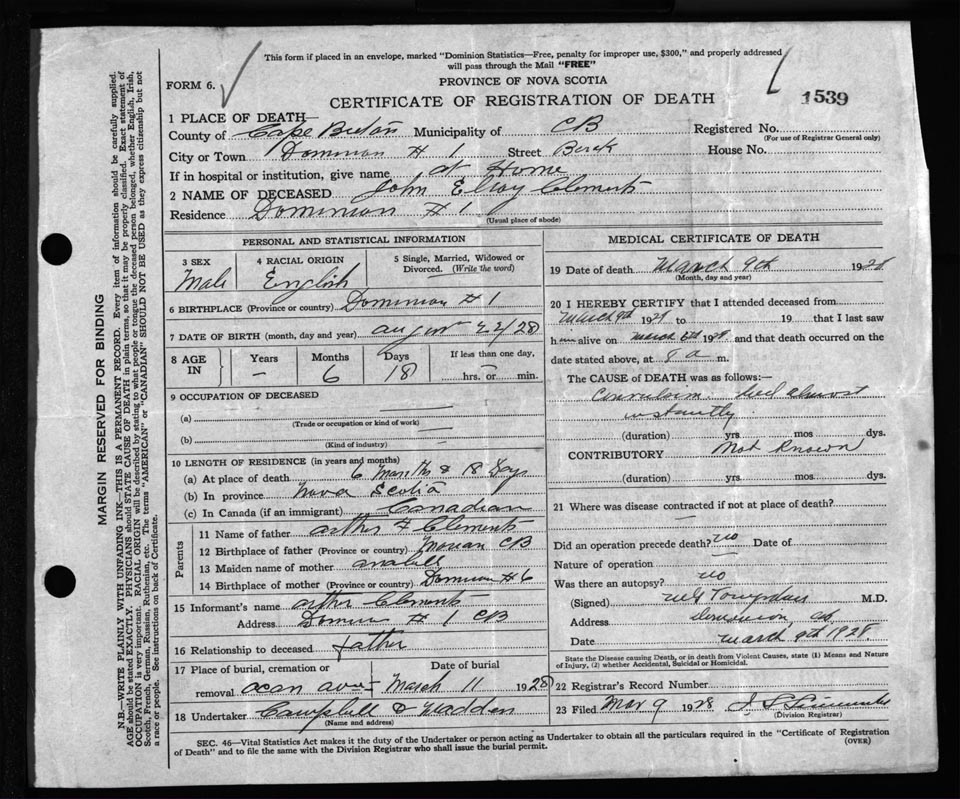 This form if placed in an envelope, marked "Dominion Statistics—Free, penalty for improper use, $300," and properly addressed
will pass through the Mail "FREE"
FORM 6.
PROVINCE OF NOVA SCOTIA
CERTIFICATE OF REGISTRATION OF DEATH
1539
1 PLACE OF DEATH
County of Cape Breton Municipality of CB Registered No.
(For use of Registrar General only)
City or Town Dominion # 1 Street House No.
If in hospital or institution, give name at Home
2 NAME OF DECEASED John Elroy Clements
Residence Dominion # 1
(Usual place of abode)
PERSONAL AND STATISTICAL INFORMATION
3 SEX 4 RACIAL ORIGIN 5 Single, Married, Widowed or
Divorced. (Write the word)
Male English
6 BIRTHPLACE (Province or country) Dominion # 1
7 DATE OF BIRTH (month, day and year) August 22/28
8 AGE IN Years Months Days If less than one day,
– 6 18 hrs. or min.
9 OCCUPATION OF DECEASED
(a)
(Trade or occupation or kind of work)
(b)
(Kind of industry)
10 LENGTH OF RESIDENCE (in years and months)
(a) At place of death 6 Months & 18 Days
(b) In province Nova Scotia
(c) In Canada (if an immigrant) Canadian
Parents
11 Name of father Arthur F Clements
12 Birthplace of father (Province or country) CB
13 Maiden name of mother
14 Birthplace of mother (Province or country) Dominion # 6
15 Informant's name Arthur Clements
Address Dominion # 1 CB
16 Relationship to deceased father
17 Place of burial, cremation or Date of burial
removal March 11 1928
18 Undertaker Campbell & Madden
(Name and address)
MEDICAL CERTIFICATE OF DEATH
19 Date of death March 9th 1928
(Month, day and year)
20 I HEREBY CERTIFY that I attended deceased from
March 9th 1929 to 19 that I last saw
h im alive on March 8th 1929 and that death occurred on the
date stated above, at 8 a m.
The CAUSE of DEATH was as follows:—
Convulsion died almost
instantly
(duration) yrs. mos. dys.
CONTRIBUTORY Not Known
(duration) yrs. mos. dys.
21 Where was disease contracted if not at place of death?
Did an operation precede death? no Date of
Nature of operation
Was there an autopsy? no
(Signed) M.D.
Address Dominion, CB
Date March 9th 1928
State the Disease causing Death, or in death from Violent Causes, state (1) Means and Nature
of Injury, (2) whether Accidental, Suicidal or Homicidal.
22 Registrar's Record Number
23 Filed Mar 9 1928
(Division Registrar)
SEC. 46—Vital Statistics Act makes it the duty of the Undertaker or person acting as Undertaker to obtain all the particulars required in the "Certificate of Registration
of Death" and to file the same with the Division Registrar who shall issue the burial permit.
(OVER)
MARGIN RESERVED FOR BINDING
N.B.—WRITE PLAINLY WITH UNFADING INK—THIS IS A PERMANENT RECORD. Every item of information should be carefully supplied.
AGE should be stated EXACTLY. PHYSICIANS should STATE CAUSE OF DEATH in plain terms, so that it may be properly classified. Exact statement of
OCCUPATION is very important. RACIAL ORIGIN will be described by stating to what people or tongue the deceased person belonged, whether English, Irish,
Scotch, French, German, Russian, Ruthenian, etc. The terms "AMERICAN" or "CANADIAN" SHOULD NOT BE USED as they express citizenship but not
a race or people. See instructions on back of Certificate.